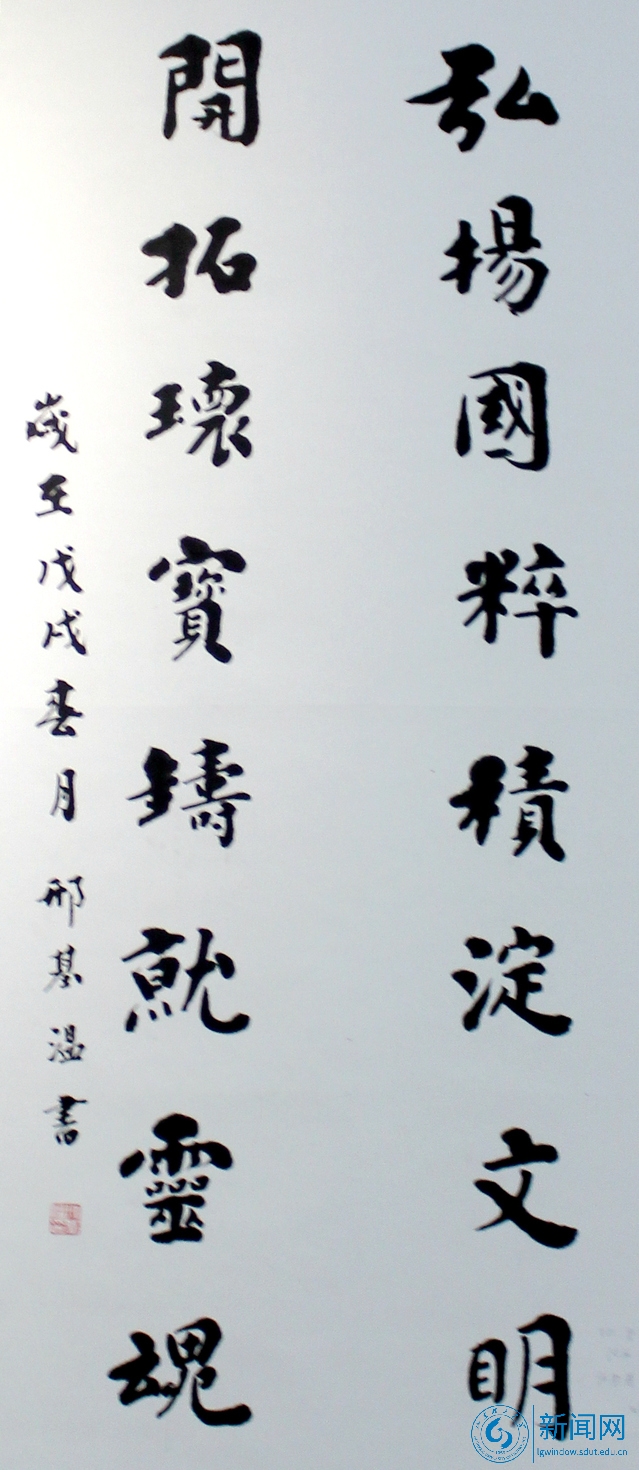 弘揚國粹積淀文明
開拓瓌寶鑄就靈魂
歲至戊戌春月邢基温書
新闻网
lgwindow.sdut.edu.cn